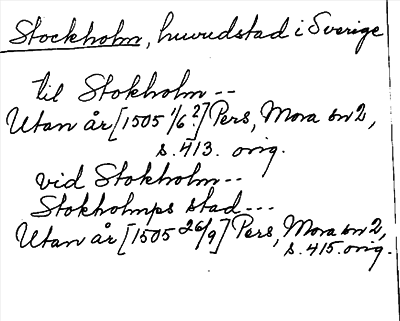 Stockholm, huvudstad i Sverige
til Stokholm --
Utan år [1505 1/6?] Pers, Mora sn 2,
s. 413. orig.
vid Stokholm --
Stokholmps stad ---
Utan år [1505 26/9] Pers, Mora sn 2,
s. 415. orig.